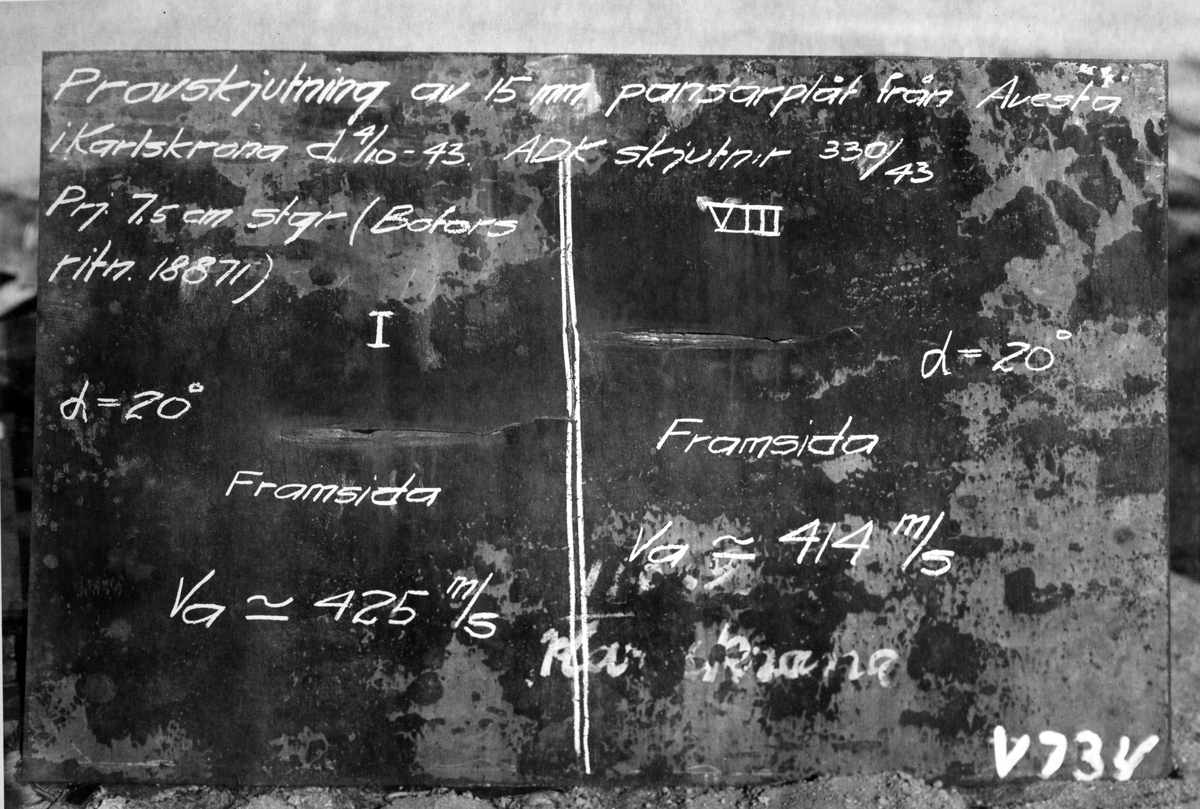 Provskjutning av 15 mm pansarplåt från Avesta
i Karlskrona d. 4/10-43. ADK skjutn:r 330/43
Prj. 7.5 cm stgr (Bofors
ritn. 18871)
I
α=20°
Framsida
Va ≃ 425 m/s
VIII
α=20°
Framsida
Va ≃ 414 m/s
V734